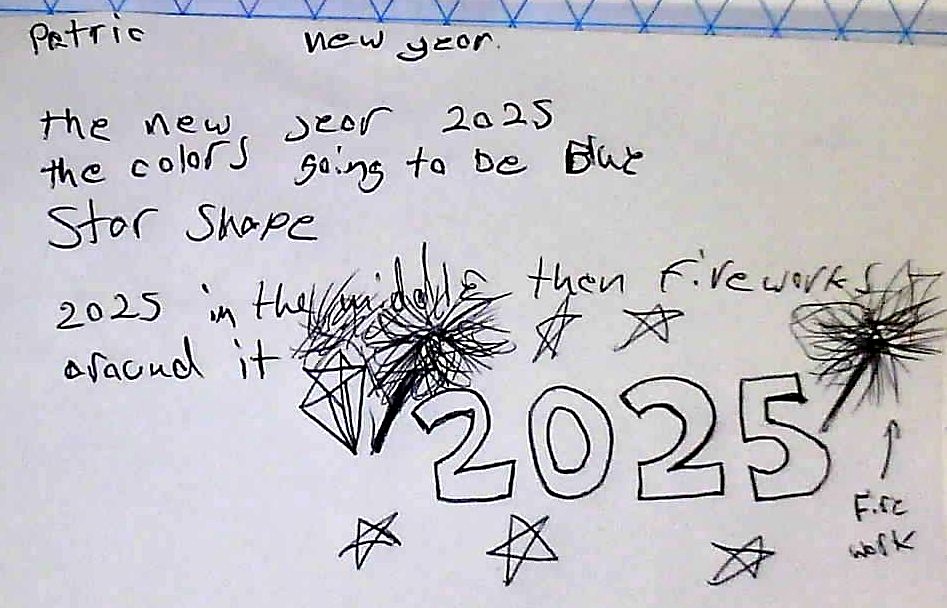 Patric new year.
the new year 2025
the colors going to be Blue
Star Shape
2025 in the middle then fireworks
around it
2025
Fire
work